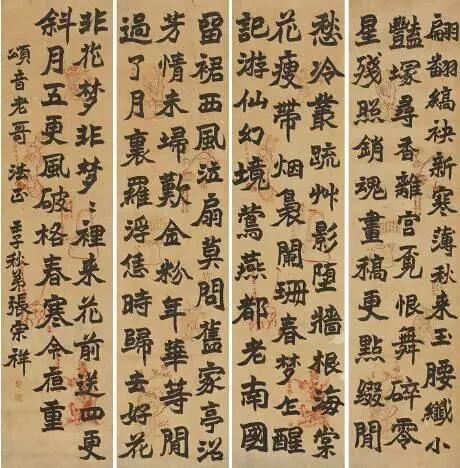 翩翻縞袂新寒薄秋来玉腰纖小
豔塚尋香離宮覓恨舞碎零
星殘照銷魂畫稿更點綴閒
愁冷叢疏艸影墮牆根海棠
花瘦帶烟裊闌珊春梦乍醒
記游仙幻境鶯燕都老南國
留裙西風泣扇莫問舊家亭沼
芳情未埽歎金粉年華等閒
過了月裏羅浮恁時歸去好花
非花梦非梦〻裡来花前送四更
斜月五更風破格春寒重
頌音老哥法正 壬子秋弟張宗祥